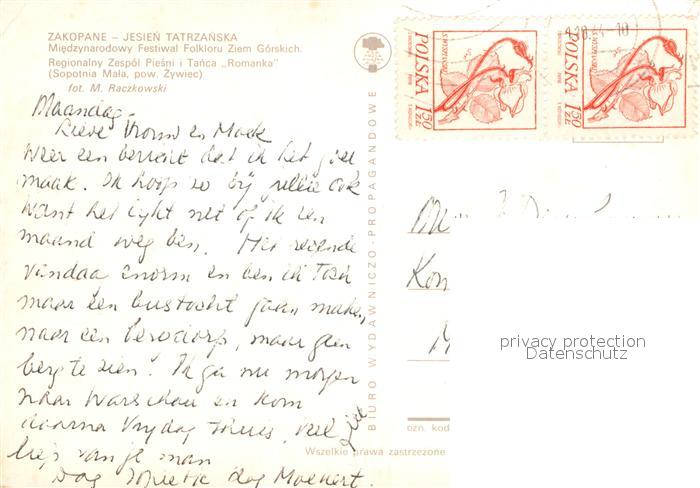 ZAKOPANE – JESIEŃ TATRZAŃSKA
Międzynarodowy Festiwal Folkloru Ziem Górskich.
Regionalny Zespół Pieśni i Tańca „Romanka"
(Sopotnia Mała, pow. Żywiec)
fot. M. Raczkowski
Maandag.
Lieve en
Weer een bericht dat ik het goed
maak. Ik hoop zo bij jullie ook
want het lijkt net of ik een
maand weg ben. Het regende
vandaag enorm en ben ik toch
maar een bustocht gaan maken,
naar een bergdorp, maar geen
berg te zien! Ik ga nu morgen
naar Warschau en kom
daarna Vrijdag thuis, veel
liefs van je man
Dag dag
BIURO WYDAWNICZO-PROPAGANDOWE
Wszelkie prawa zastrzeżone
POLSKA 1,50 ZŁ
POLSKA 1,50 ZŁ
ozn. kod
privacy protection
Datenschutz